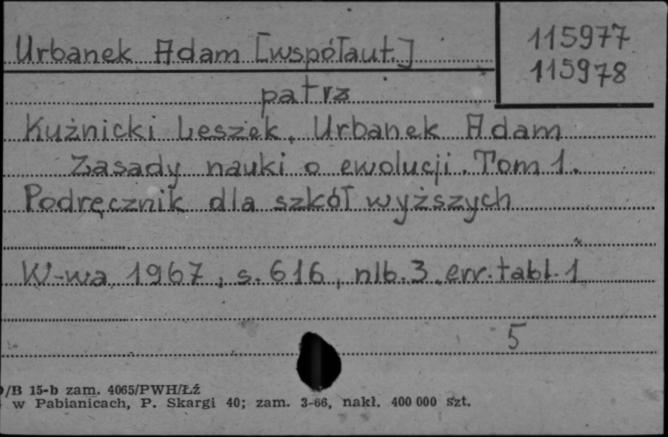 Urbanek Adam [współaut.]
115977
115978
patrz
Kuźnicki Leszek, Urbanek Adam
Zasady nauki o ewolucji. Tom 1.
Podręcznik dla szkół wyższych
W-wa 1967, s. 616, nlb. 3 err. tabl. 1
5
/B 15-b zam. 4065/PWH/Łź
w Pabianicach, P. Skargi 40; zam. 3-66, nakł. 400 000 szt.